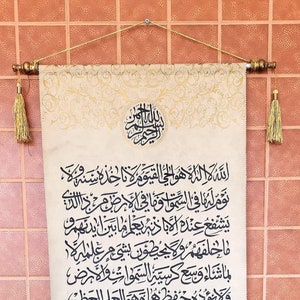 بسم الله الرحمن الرحيم
الله لا اله الا هو الحي القيوم لا تاخذه سنة و لا
نوم له ما في السموات و ما في الارض من ذا الذي
يشفع عنده الا باذنه يعلم ما بين ايديهم و
ما خلفهم و لا يحيطون بشئ من علمه الا
بما شاء وسع كرسيه السموات و الارض
و لا يؤده حفظهما و هو العلي العظيم